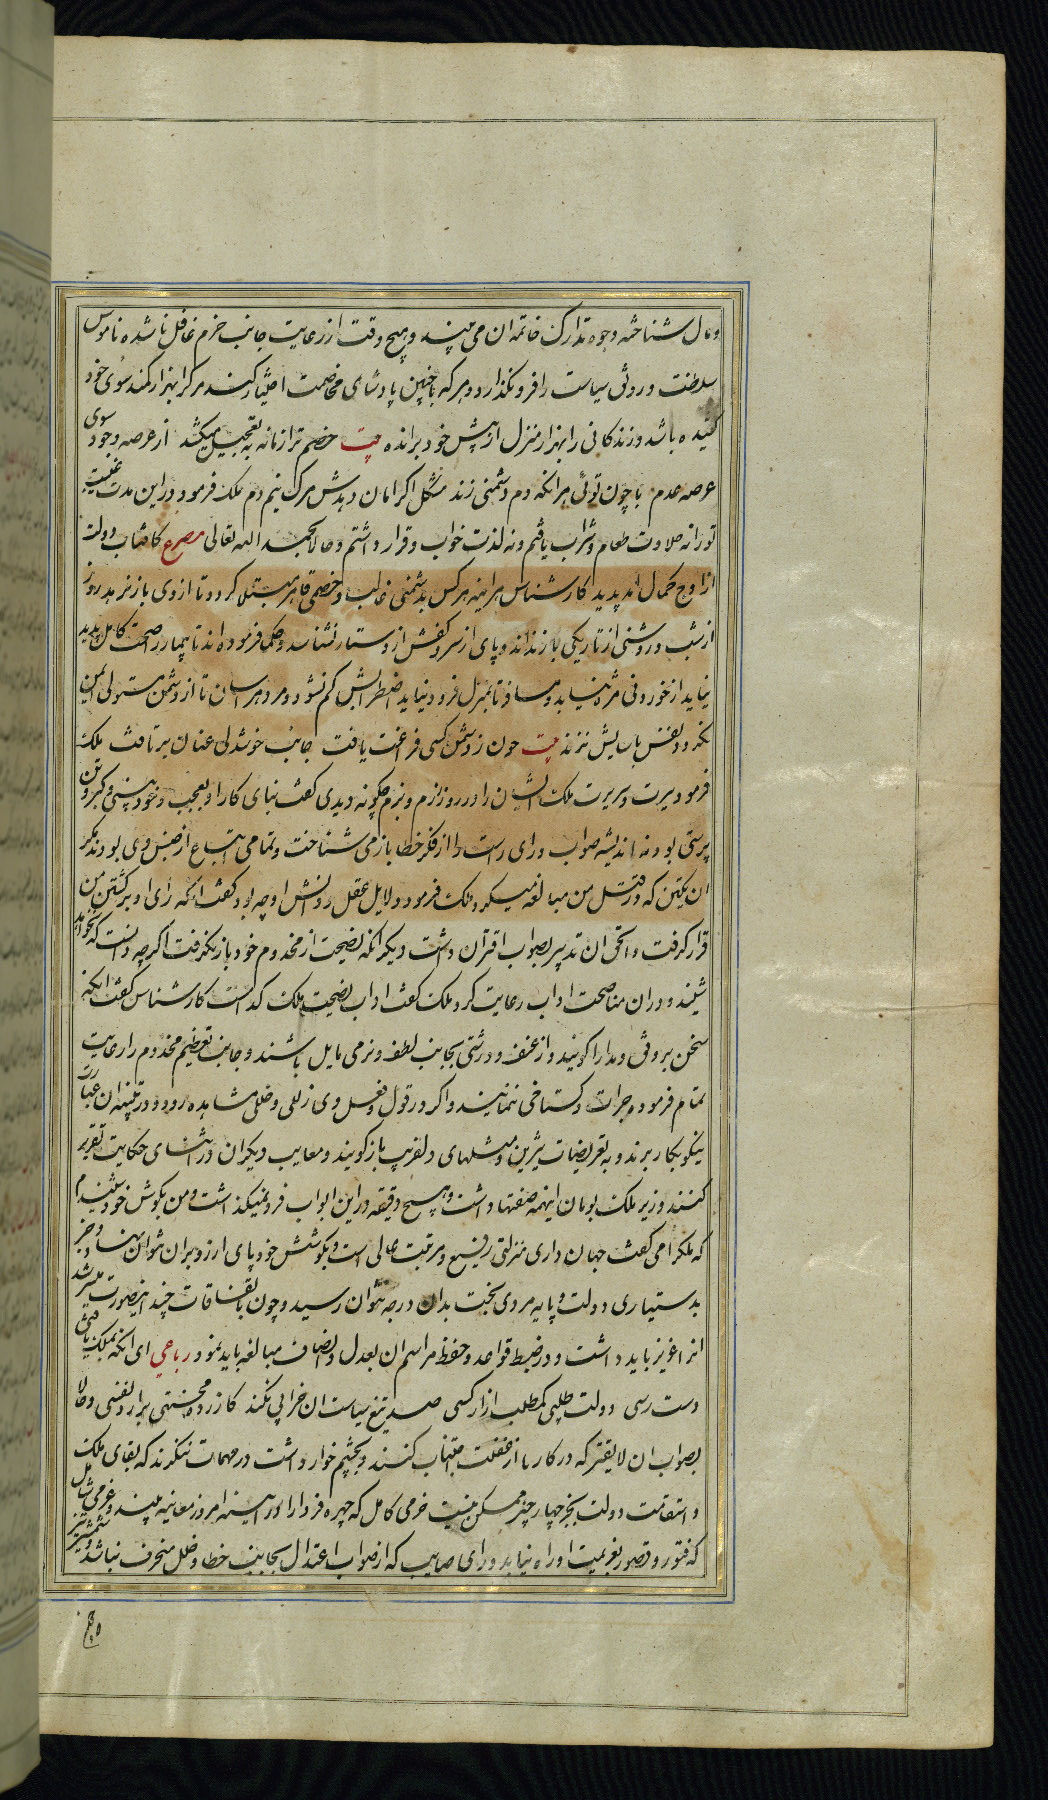 و مال شناخته وجوه تدارک خاتمه ان می بیند و هیچ وقت از رعایت جانب حزم غافل نا شده ناموس
سلطنت و رونق سیاست را فرو نگذارد و هر که با چنین پادشاهی مخاصمت اختیار کند مرک را بهزار کمند سوی خود
کشیده باشد و زندکانی را بهزار منزل از پیش خود رانده بیت خصم ترا زمانه به تعجیل میکشد از عرصه وجود سوی
عرصه عدم با چون توئی هر انکه دم دشمنی زند مشکل اکر امان دهدش مرک نیم دم ملک فرمود در این مدت غیبت
تو را نه حلاوت طعام و شراب یافتم و نه لذت خواب و قرار داشتم و حالا بحمد الله تعالی مصرع کافتاب دولت
از اوج کمال امد پدید کارشناس هراینه هر کس بدشمنی غالب و خصمی قاهر مبتلا کردد تا از وی باز نرهد روز
از شب و روشنی از تاریکی باز نداند و پای از سر و کفش از دستار نشناسد و حکما فرموده اند تا بیمار را صحت کامل پدید
نیاید از خوردنی مزه نیابد و مسافر تا بمنزل فرود نیاید اضطرابش کم نشود و مرد هراسان تا از دشمن مستولی ایمن
نکردد نفس باسایش نزند بیت چون ز دشمن کسی فراغت یافت جانب خوشدلی عنان بر تافت ملک
فرمود سیرت و سریرت ملک ایشان را در روز رزم و بزم چکونه دیدی کفت بنای کار او بعجب و خود بینی و کبر و تن
پرستی بود نه اندیشه صواب و رای راست را از فکر خطا باز می شناخت و تمامی اتباع از جنس وی بودند مکر
ان یکتن که در قتل من مبالغه میکرد ملک فرمود دلایل عقل و دانش او چه بود کفت انکه رای او بر کشتن من
قرار کرفت و الحق ان تدبیر بصواب اقتران داشت دیکر انکه نصیحت از مخدوم خود باز نکرفت اکرچه دانست که نخواهد
شنید و در ان مناصحت اداب رعایت کرد ملک کفت اداب نصیحت ملک کدام است کارشناس کفت انکه
سخن برفق و مدارا کویند و از عنف و درشتی بجانب لطف و نرمی مایل باشند و جانب تعظیم مخدوم را رعایت
تمام فرموده جرات و کستاخی ننمایند و اکر در قول و فعل وی زللی و خللی مشاهده رود در تنبیه ان عبارت
نیکو بکار برند و به تعریضات شیرین و مثلهای دلفریب باز کویند و معایب دیکران در اثنای حکایت تقریر
کنند وزیر ملک بومان اینهمه صفتها داشت و هیچ دقیقه در این ابواب فرو نمیکذاشت و من بکوش خود شنیدم
که ملک را می کفت جهان داری منزلتی رفیع و مرتبتی عالی است و بکوشش خود پای ارزو بران نتوان نهاد و جز
بدستیاری دولت و پایه مردی بخت بدان درجه نتوان رسید و چون باتفاقات چند این صورت میسر شد
انرا عزیز باید داشت و در ضبط قواعد و حفظ مراسم ان بعدل و انصاف مبالغه باید نمود رباعی ای انکه بملک یافتی
دست رسی دولت طلبی کم طلب ازار کسی صد تیغ سیاست ان خرابی نکند کازرده محنتی برارد نفسی و حالا
بصواب ان لایقتر که در کارها از غفلت اجتناب کنند و بچشم خوار داشت در مهمات ننکرند که بقای ملک
و استقامت دولت بجز بچهار چیز ممکن نیست حزمی کامل که چهره فردا را در اینه امروز معاینه بیند و عزمی شامل
که فتور و قصور بعزیمت او راه نیابد و رای صایب که از صواب اعتدال بجانب خطا و خلل منحرف نباشد و شمشیر تیز